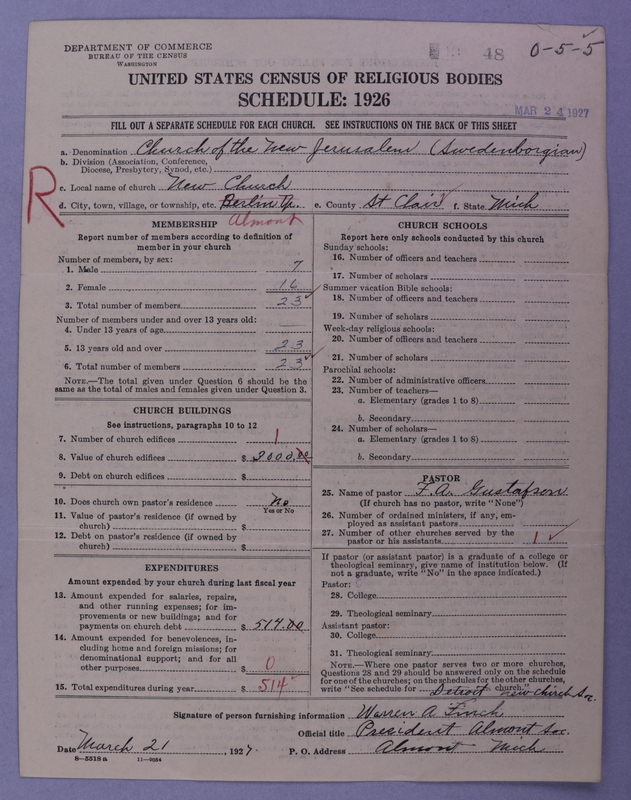 DEPARTMENT OF COMMERCE
BUREAU OF THE CENSUS
WASHINGTON
48
0-5-5
UNITED STATES CENSUS OF RELIGIOUS BODIES
SCHEDULE: 1926
MAR 24 1927
FILL OUT A SEPARATE SCHEDULE FOR EACH CHURCH. SEE INSTRUCTIONS ON THE BACK OF THIS SHEET
R
a. Denomination Church of the New Jerusalem (Swedenborgian)
b. Division (Association, Conference,
Diocese, Presbytery, Synod, etc.)
c. Local name of church New Church
d. City, town, village, or township, etc. Berlin Tp. e. County St Clair f. State Mich
Almont
MEMBERSHIP
Report number of members according to definition of
member in your church
Number of members, by sex:
1. Male 7
2. Female 16
3. Total number of members 23
Number of members under and over 13 years old:
4. Under 13 years of age
5. 13 years old and over 23
6. Total number of members 23
NOTE.—The total given under Question 6 should be the
same as the total of males and females given under Question 3.
CHURCH BUILDINGS
See instructions, paragraphs 10 to 12
7. Number of church edifices 1
8. Value of church edifices $ 2000.00
9. Debt on church edifices $
10. Does church own pastor's residence No
Yes or No
11. Value of pastor's residence (if owned by
church) $
12. Debt on pastor's residence (if owned by
church) $
EXPENDITURES
Amount expended by your church during last fiscal year
13. Amount expended for salaries, repairs,
and other running expenses; for im-
provements or new buildings; and for
payments on church debt $ 514.00
14. Amount expended for benevolences, in-
cluding home and foreign missions; for
denominational support; and for all
other purposes $ 0
15. Total expenditures during year $ 514
CHURCH SCHOOLS
Report here only schools conducted by this church
Sunday schools:
16. Number of officers and teachers
17. Number of scholars
Summer vacation Bible schools:
18. Number of officers and teachers
19. Number of scholars
Week-day religious schools:
20. Number of officers and teachers
21. Number of scholars
Parochial schools:
22. Number of administrative officers
23. Number of teachers—
a. Elementary (grades 1 to 8)
b. Secondary
24. Number of scholars—
a. Elementary (grades 1 to 8)
b. Secondary
PASTOR
25. Name of pastor F. A. Gustafson
(If church has no pastor, write "None")
26. Number of ordained ministers, if any, em-
ployed as assistant pastors
27. Number of other churches served by the
pastor or his assistants 1
If pastor (or assistant pastor) is a graduate of a college or
theological seminary, give name of institution below. (If
not a graduate, write "No" in the space indicated.)
Pastor:
28. College
29. Theological seminary
Assistant pastor:
30. College
31. Theological seminary
NOTE.—Where one pastor serves two or more churches,
Questions 28 and 29 should be answered only on the schedule
for one of the churches; on the schedules for the other churches,
write "See schedule for Detroit New Church Soc. church."
Signature of person furnishing information Warren A Finch
Official title President Almont Soc.
Date March 21, 1927. P. O. Address Almont Mich
8—5518a 11—9084